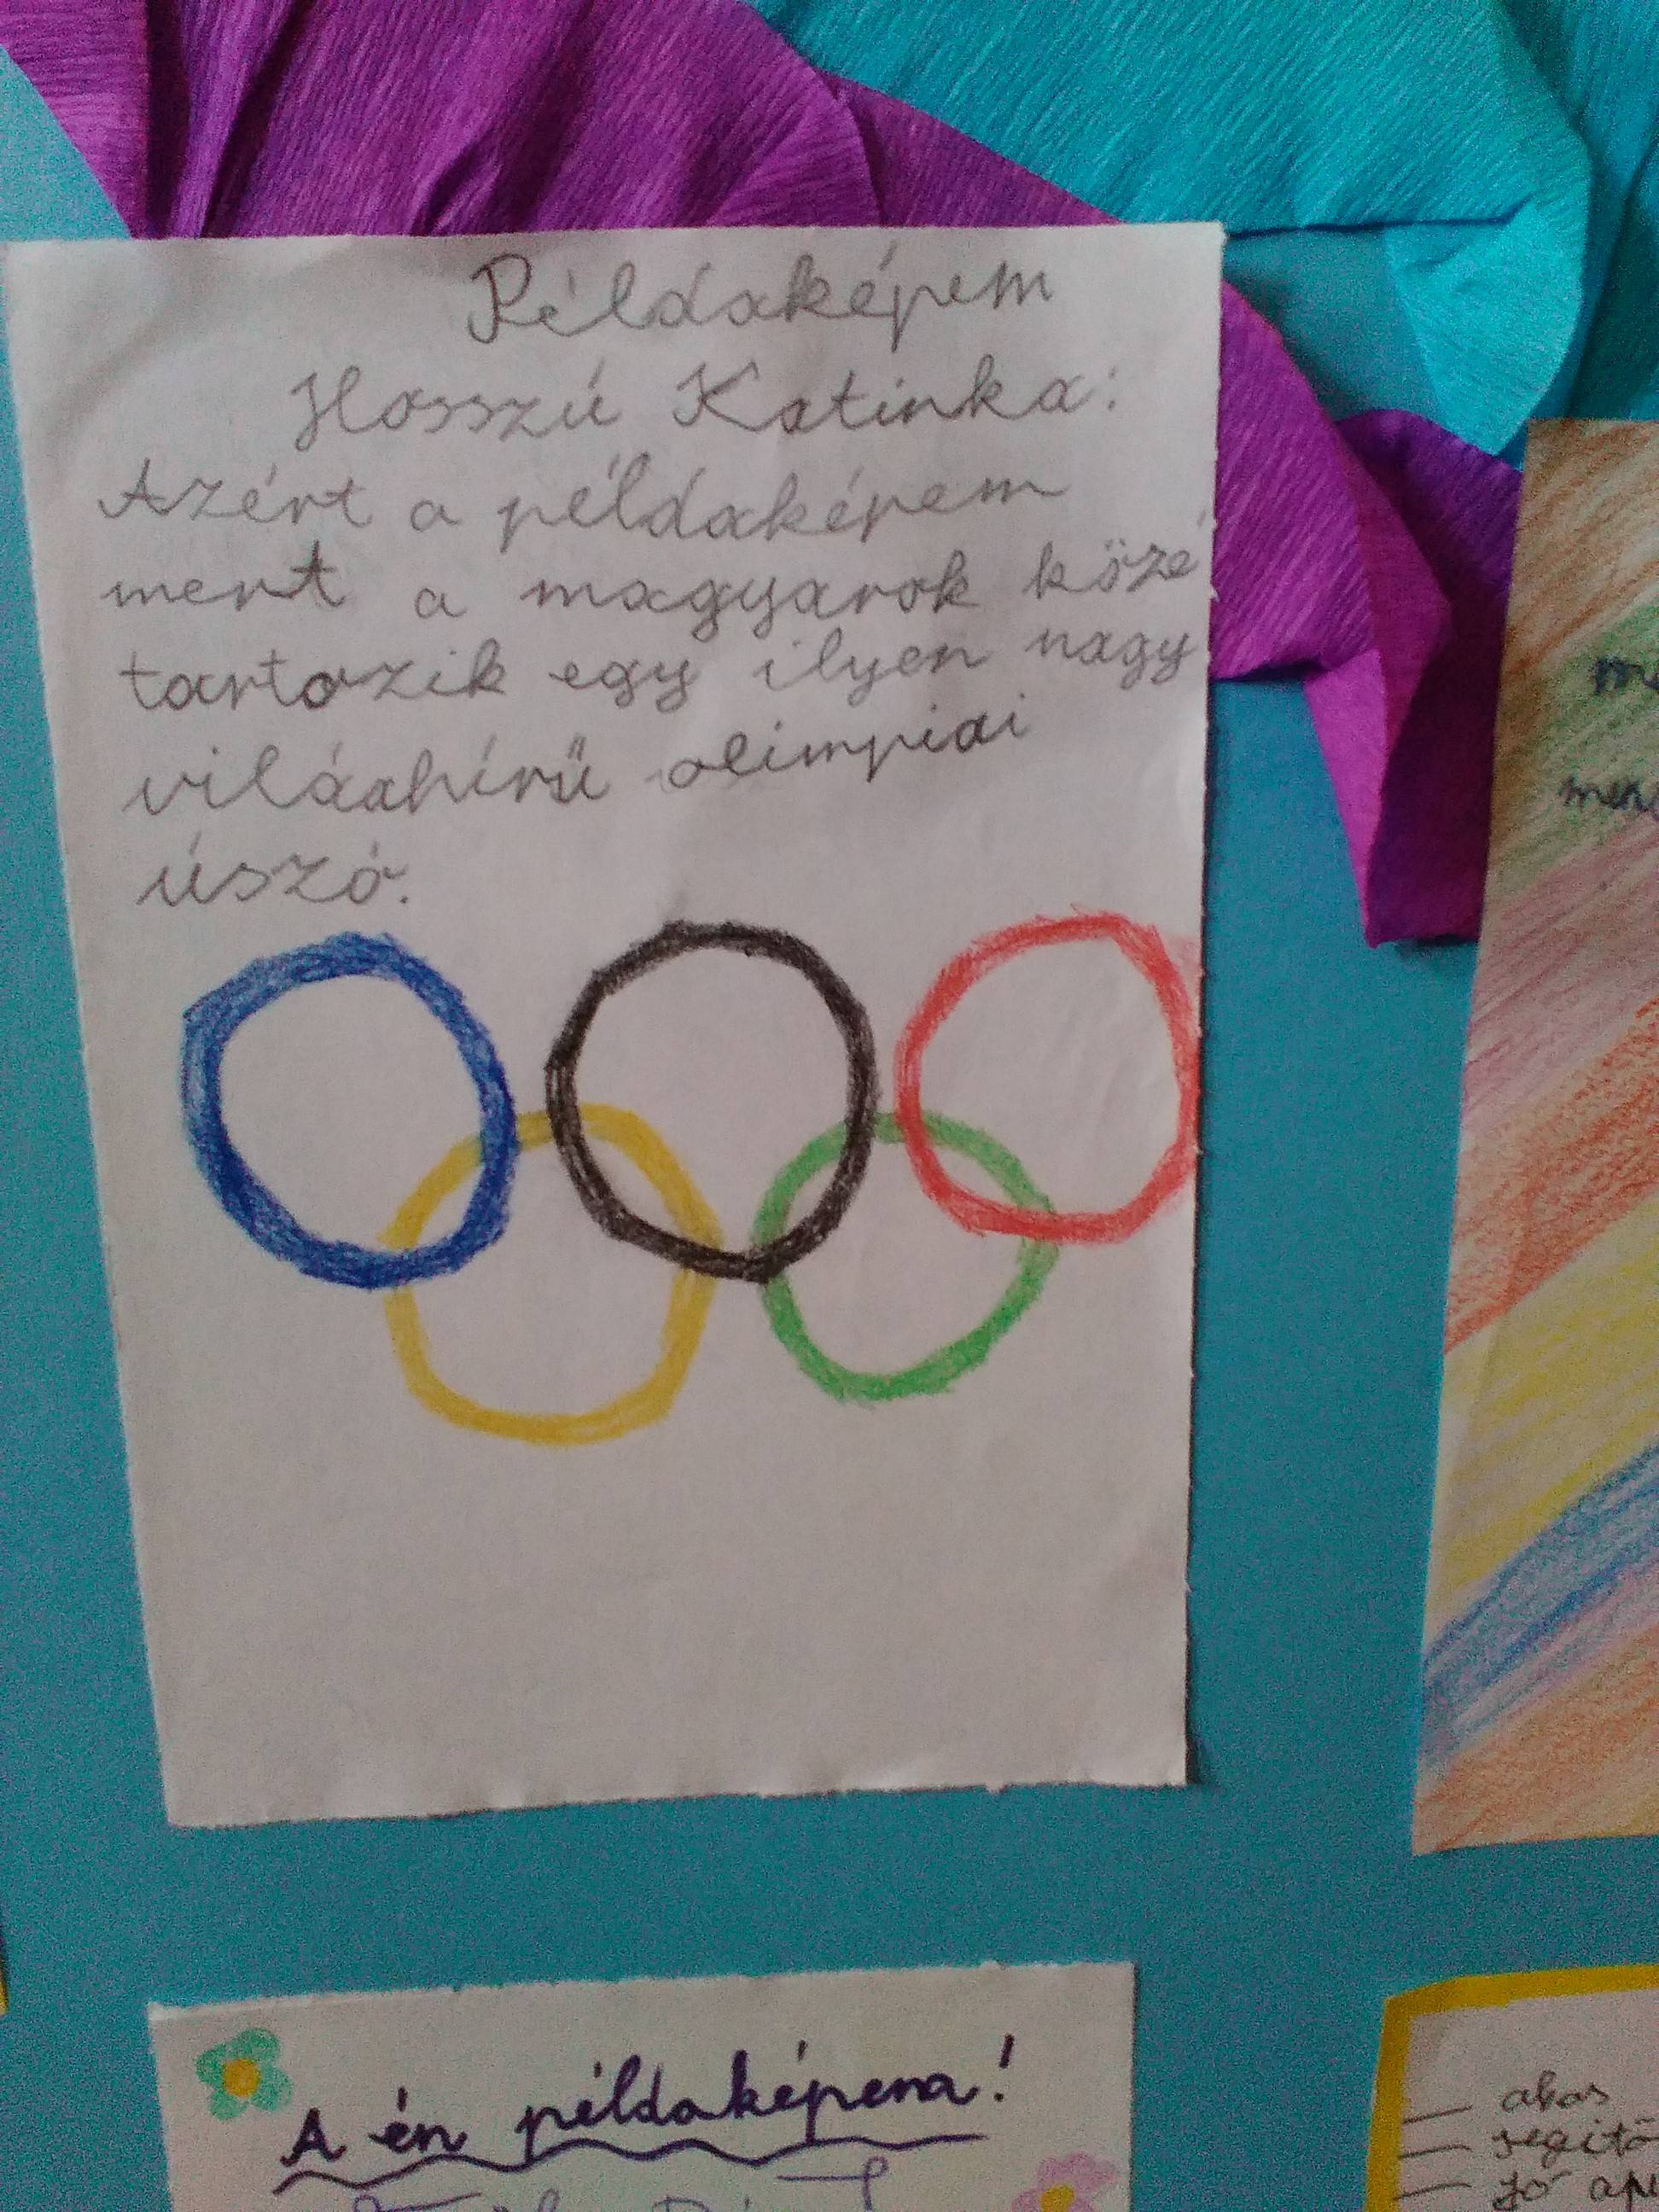 Példaképem
Hosszú Katinka:
Azért a példaképem
mert a magyarok közé
tartozik egy ilyen nagy
viláahírű olimpiai
úszó.
me
A én példaképema!
okos
segítő
jó